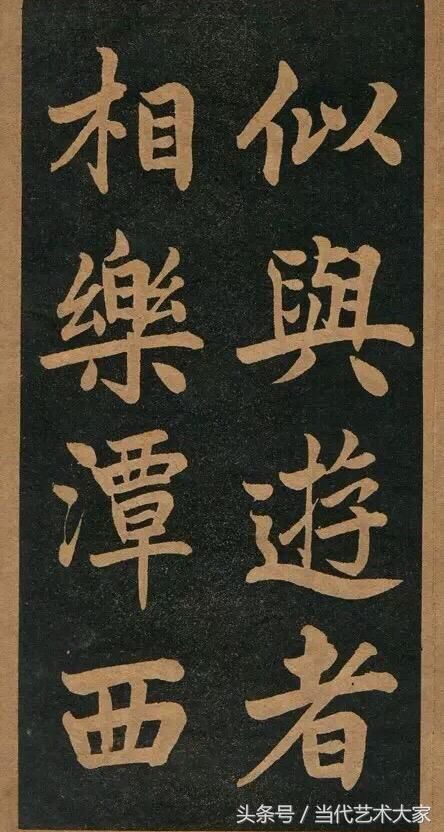 似與遊者
相樂潭西
头条号／当代艺术大家